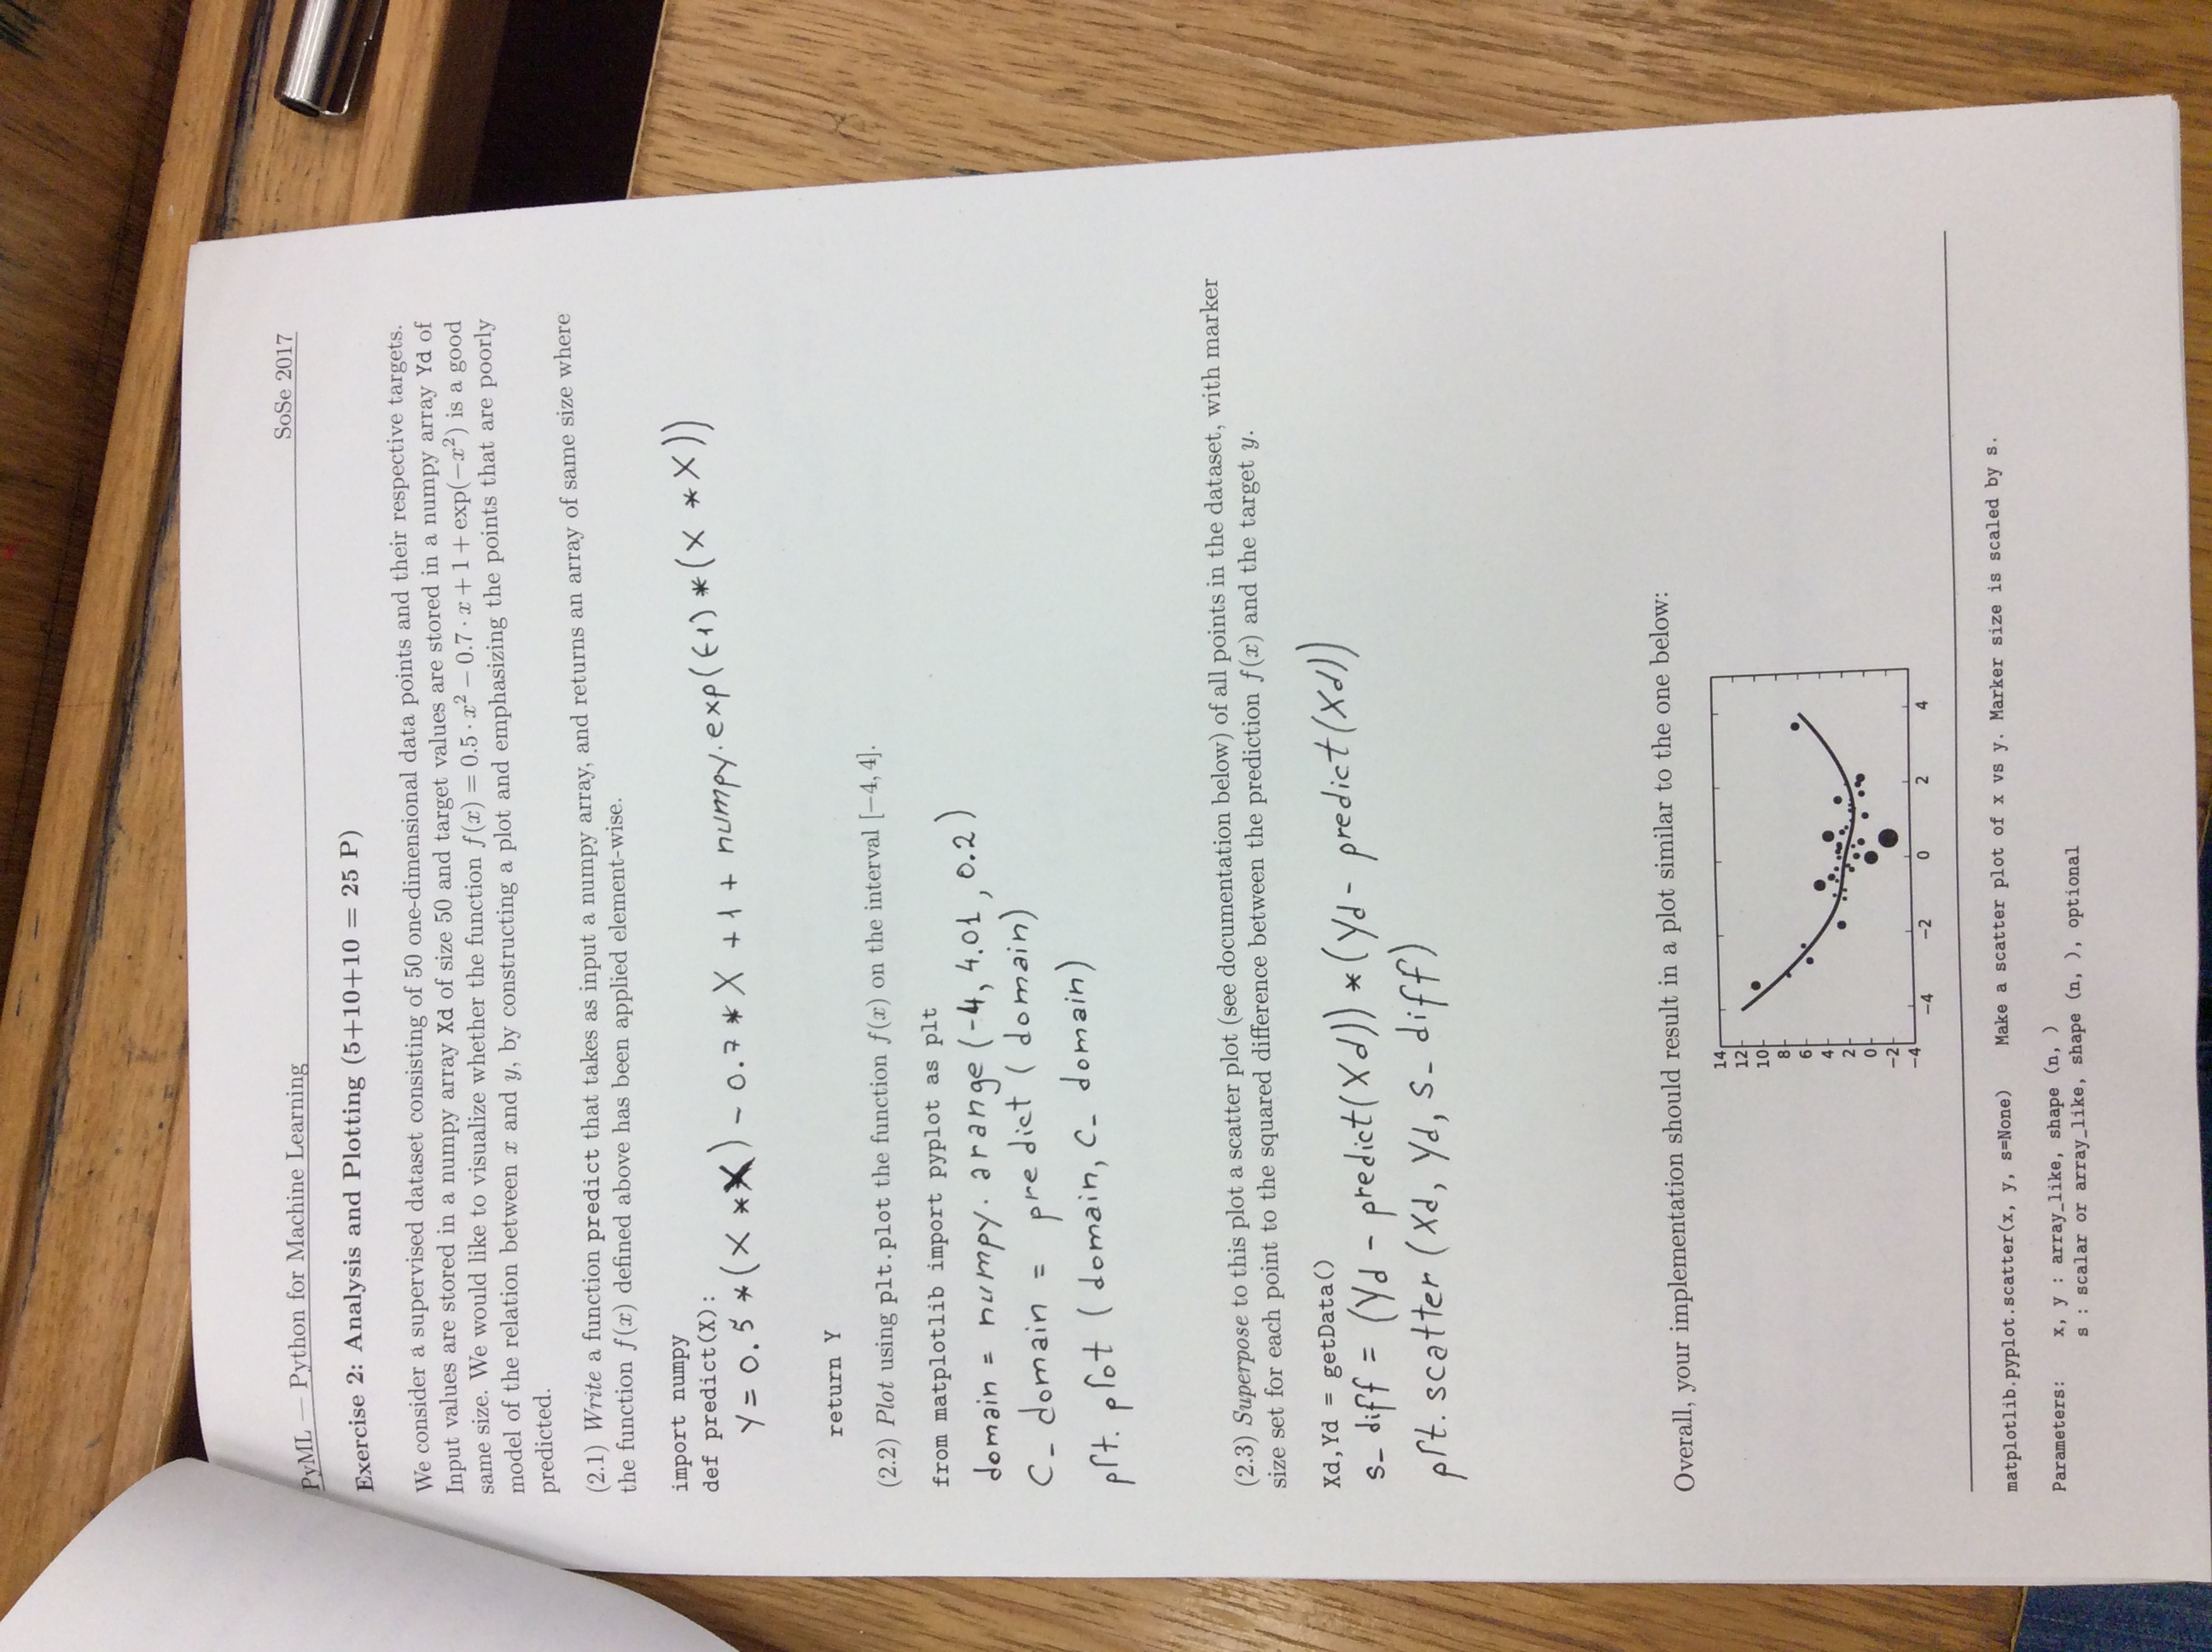 PyML — Python for Machine Learning
SoSe 2017
Exercise 2: Analysis and Plotting (5+10+10 = 25 P)
We consider a supervised dataset consisting of 50 one-dimensional data points and their respective targets.
Input values are stored in a numpy array Xd of size 50 and target values are stored in a numpy array Yd of
same size. We would like to visualize whether the function f(x) = 0.5 · x² − 0.7 · x + 1 + exp(−x²) is a good
model of the relation between x and y, by constructing a plot and emphasizing the points that are poorly
predicted.
(2.1) Write a function predict that takes as input a numpy array, and returns an array of same size where
the function f(x) defined above has been applied element-wise.
import numpy
def predict(X):
Y = 0.5 * (X * X) - 0.7 * X + 1 + numpy.exp((-1) * (X * X))
return Y
(2.2) Plot using plt.plot the function f(x) on the interval [−4, 4].
from matplotlib import pyplot as plt
domain = numpy.arange(-4, 4.01, 0.2)
C_domain = predict(domain)
plt.plot(domain, C_domain)
(2.3) Superpose to this plot a scatter plot (see documentation below) of all points in the dataset, with marker
size set for each point to the squared difference between the prediction f(x) and the target y.
Xd,Yd = getData()
s_diff = (Yd - predict(Xd)) * (Yd - predict(Xd))
plt.scatter(Xd, Yd, s_diff)
Overall, your implementation should result in a plot similar to the one below:
14
12
10
8
6
4
2
0
−2
−4
−4 −2 0 2 4
matplotlib.pyplot.scatter(x, y, s=None) Make a scatter plot of x vs y. Marker size is scaled by s.
Parameters: x, y : array_like, shape (n, )
s : scalar or array_like, shape (n, ), optional